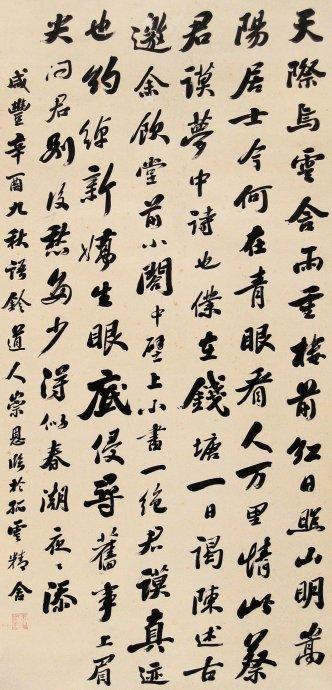 天際烏雲含雨重樓前紅日照山明嵩
陽居士今何在青眼看人万里情此蔡
君謨夢中詩也僕在錢塘一日謁陳述古
邀余飲堂前小閣中壁上小書一絕君謨真迹
也約綽新嬌生眼底侵尋舊事上眉
尖問君別後愁多少得似春潮夜々添
咸豐辛酉九秋語鈴道人崇恩臨於孤雲精舍